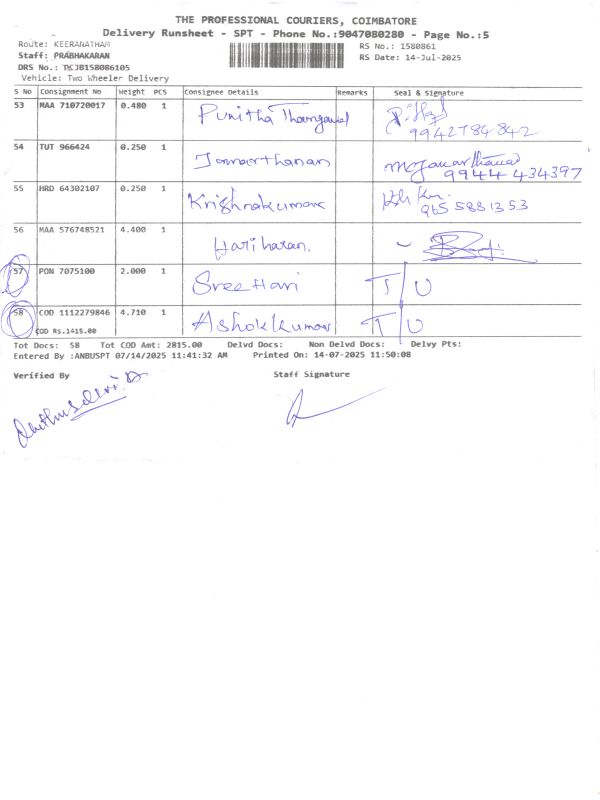 THE PROFESSIONAL COURIERS, COIMBATORE
Delivery Runsheet - SPT - Phone No.:9047080280 - Page No.:5
Route: KEERANATHAM
RS No.: 1580861
Staff: PRABHAKARAN
RS Date: 14-Jul-2025
DRS No.:
Vehicle: Two Wheeler Delivery
S No Consignment No Weight PCS Consignee Details Remarks Seal & Signature
53 MAA 710720017 0.480 1 Punitha Thangavel
9942784842
54 TUT 966424 0.250 1 Janarthanan
9944434397
55 HRD 64302107 0.250 1 Krishnakumar
9655881353
56 MAA 576748521 4.400 1 Hariharan.
57 PON 7075100 2.000 1 Sree Hari T/U
58 COD 1112279846 4.710 1 Ashok Kumar T/U
COD Rs.1415.00
Tot Docs: 58 Tot COD Amt: 2815.00 Delvd Docs: Non Delvd Docs: Delvy Pts:
Entered By :ANBUSPT 07/14/2025 11:41:32 AM Printed On: 14-07-2025 11:50:08
Verified By Staff Signature